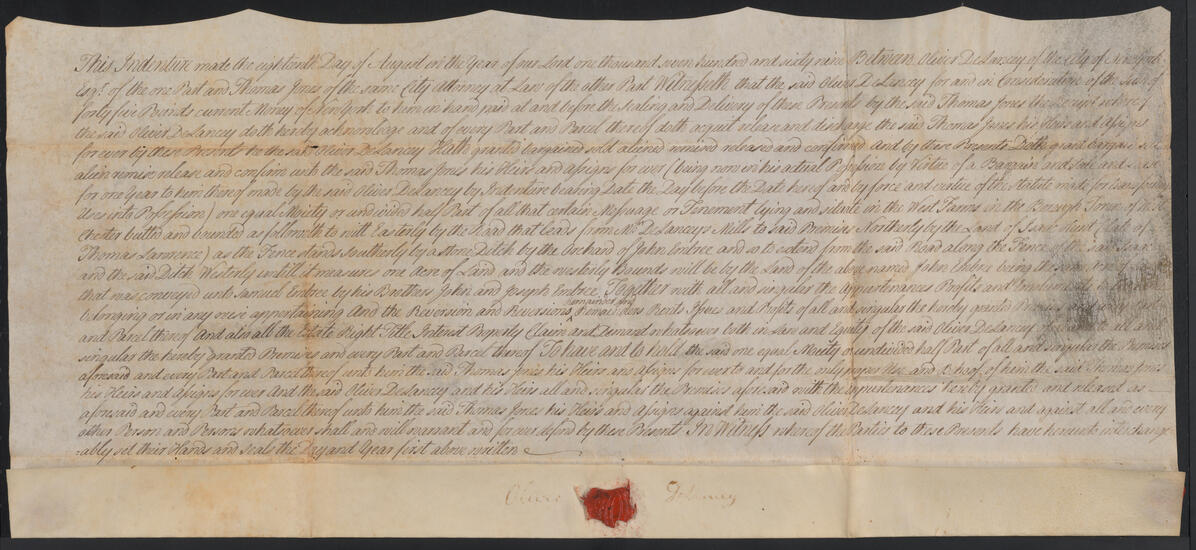 This Indenture made the eighteenth Day of August in the Year of our Lord one thousand seven hundred and sixty nine Between Oliver DeLancey of the City of New York
Esqr. of the one Part and Thomas Jones of the same City Attorney at Law of the other Part Witnesseth that the said Oliver DeLancey for and in Consideration of the Sum of
forty five Pounds current Money of New York to him in hand paid at and before the Sealing and Delivery of these Presents by the said Thomas Jones the Receipt whereof
the said Oliver DeLancey doth hereby acknowledge and of every Part and Parcel thereof doth acquit release and discharge the said Thomas Jones his Heirs and Assigns
for ever by these Presents he the said Oliver DeLancey Hath granted bargained sold aliened remised released and confirmed And by these Presents Doth grant bargain sell
alien remise release and confirm unto the said Thomas Jones his Heirs and Assigns for ever (being now in his actual Possession by Virtue of a Bargain and Sale and Lease
for one Year to him thereof made by the said Oliver DeLancey by Indenture bearing Date the Day before the Date hereof and by force and virtue of the Statute made for transferring
Uses into Possession) one equal Moiety or undivided half Part of all that certain Messuage or Tenement lying and situate in the West Farms in the Borough Town of West
Chester butted and bounded as followeth to wit Easterly by the Road that leads from Mr. DeLancey's Mills to said Premises Northerly by the Land of Isaac Hunt (late of
Thomas Lawrence) as the Fence stands Southerly by a stone Ditch by the Orchard of John Embree and so to extend from the said Road along the Fence of the said Isaac
and the said Ditch Westerly untill it measures one Acre of Land and the westerly Bounds will be by the Land of the above named John Embree being the same
that was conveyed unto Samuel Embree by his Brothers John and Joseph Embree Together with all and singular the Appurtenances Profits and
belonging or in any wise appertaining And the Reversion and Reversions remainder and Remainders Rents Issues and Profits of all and singular the hereby granted
and Parcel thereof And also all the Estate Right Title Interest Property Claim and Demand whatsoever both in Law and Equity of the said Oliver DeLancey of in and to all and
singular the hereby granted Premises and every Part and Parcel thereof To have and to hold the said one equal Moiety or undivided half Part of all and singular the Premises
aforesaid and every Part and Parcel thereof unto him the said Thomas Jones his Heirs and Assigns for ever to and for the only proper Use and Behoof of him the said Thomas Jones
his Heirs and Assigns for ever And the said Oliver DeLancey and his Heirs all and singular the Premises aforesaid with the appurtenances hereby granted and released as
aforesaid and every Part and Parcel thereof unto him the said Thomas Jones his Heirs and Assigns against him the said Oliver DeLancey and his Heirs and against all and every
other Person and Persons whatsoever shall and will warrant and for ever defend by these Presents In Witness whereof the Parties to these Presents have hereunto interchange-
-ably set their Hands and Seals the Day and Year first above written
Oliver Delancey